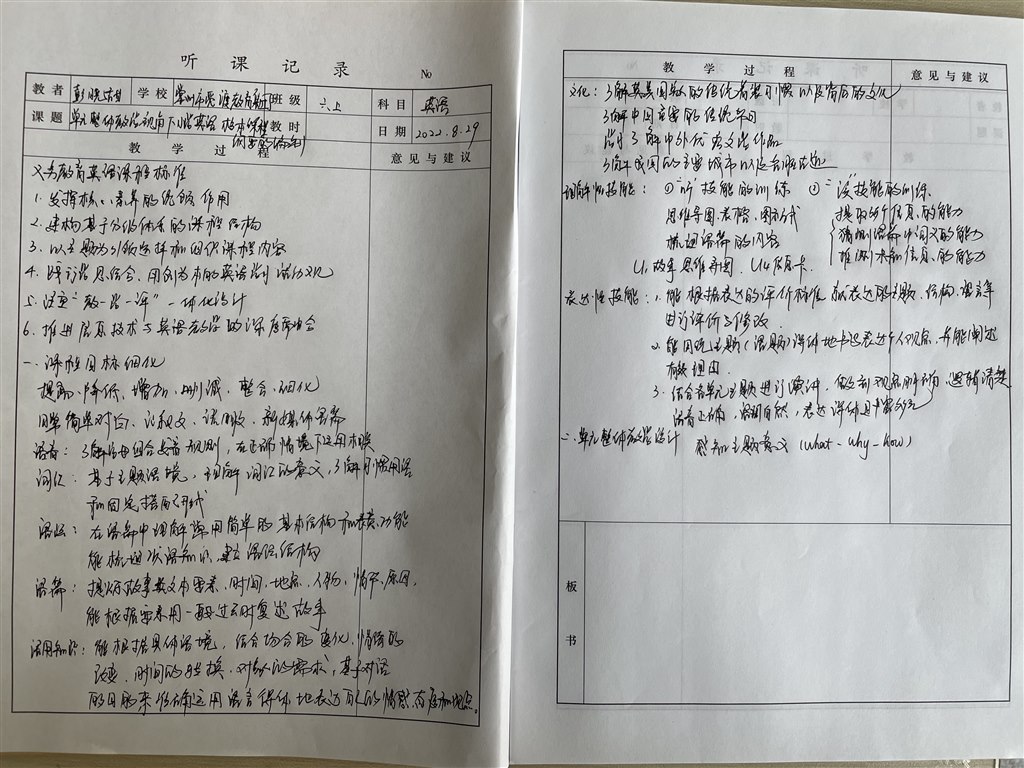 听 课 记 录 No
教者 彭晓 学校 常州市 教育 班级 六上 科目 英语
课题 单元整体教学视角下小学英语校本课程 教时 日期 2022.8.29
内容的编制
教 学 过 程 意见与建议
义务教育英语课程标准
1. 发挥核心素养的统领作用
2. 建构基于分级体系的课程结构
3. 以主题为引领选择和组织课程内容
4. 践行学思结合、用创为本的英语学习活动观
5. 注重“教-学-评”一体化设计
6. 推进信息技术与英语教学的深度融合
一、课程目标细化
提高、降低、增加、删减、整合、细化
日常简单对白、记叙文、说明文、新媒体语篇
语音：了解字母组合发音规则，在 情境下运用
词汇：基于主题语境，理解词汇的意义，了解习惯用语
和固定搭配形式
语法：在语篇中理解常用简单的基本结构和表意功能
能梳理 语法知识，建立语法结构
语篇：提炼故事类文本要素、时间、地点、人物、情节、原因，
能根据要求用一般过去时复述故事
语用知识：能根据具体语境，结合场合的变化、情绪的
改变、时间的转换、对象的需求，基于对话
的目的来准确运用语言得体地表达自己的情感、态度和观点。
教 学 过 程 意见与建议
文化：了解英美国家的传统 习惯以及背后的文化
了解中国 的传统节日
学习了解中外优秀文学作品
了解我国的主要城市以及
理解性技能：①“听”技能的训练 ②“读”技能的训练
思维导图、表格、图示式 提取 信息的能力
梳理语篇的内容 猜测语篇中词义的能力
U1 故事思维导图、U4 信息卡. 推测未知信息的能力
表达性技能：1. 能根据表达的评价标准，就表达的主题、结构、语言等
进行评价与修改.
2. 能围绕主题（话题）详细地书写表达个人观点，并能阐述
相关理由.
3. 结合各单元主题进行演讲，做到观点明确，逻辑清楚
语音正确，语调自然，表达详细且
二、单元整体教学设计 感知主题意义 (what - why - how)
板
书